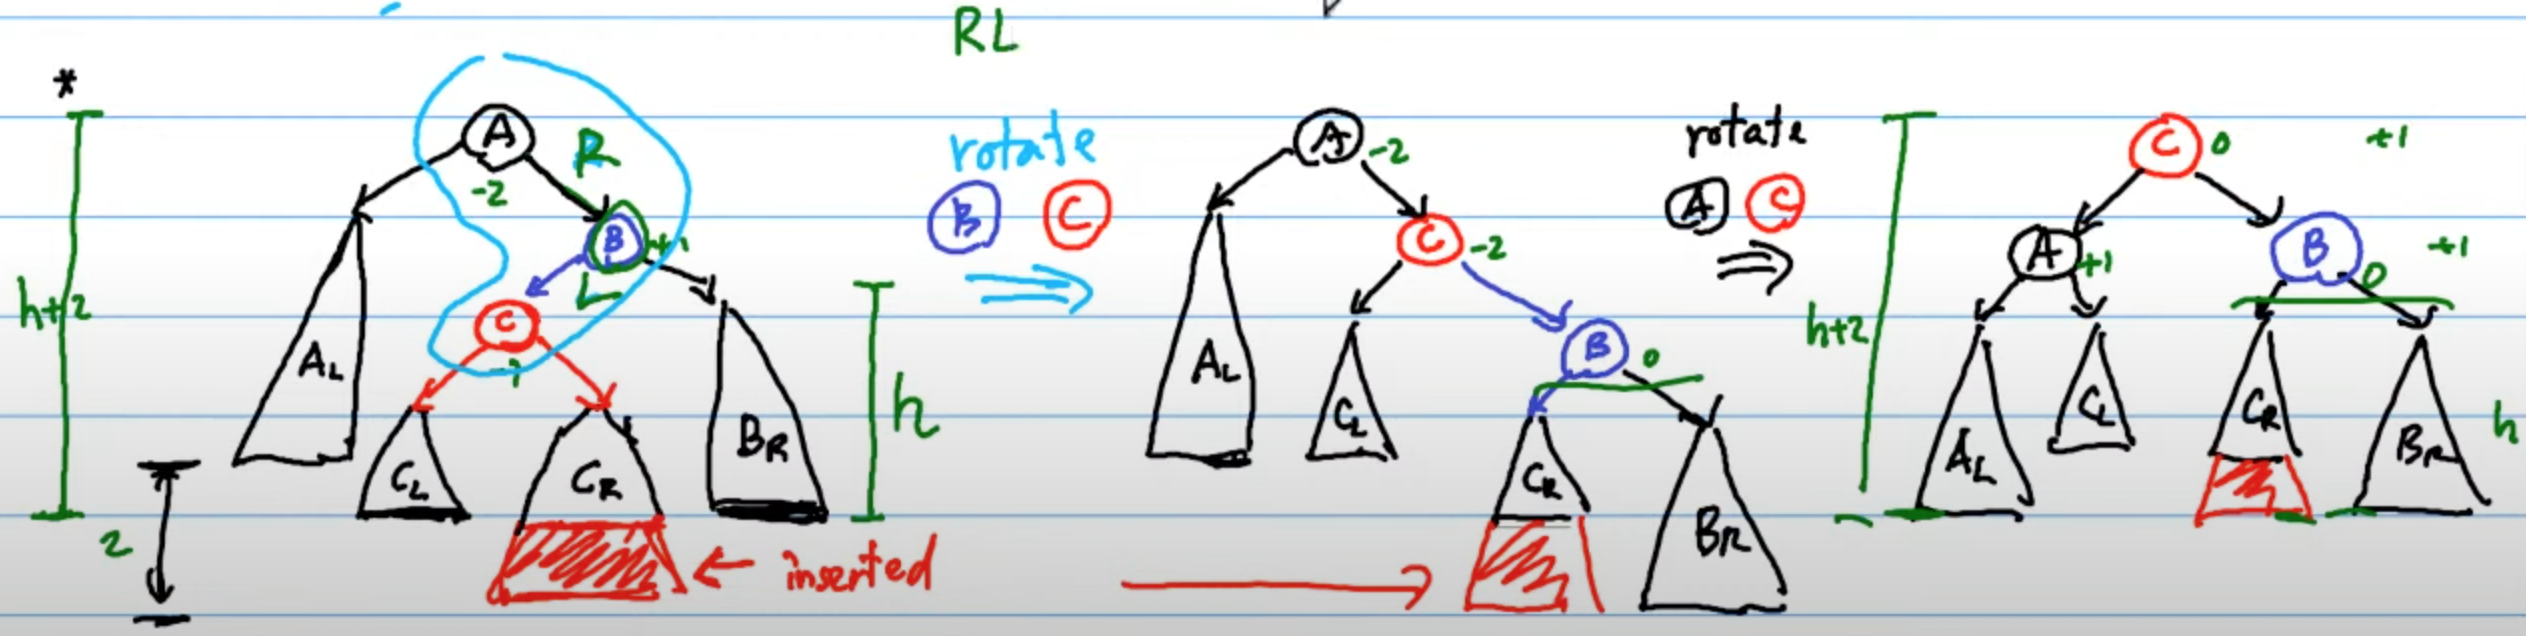 RL
*
A
R
-2
B
+1
L
C
-1
A_L
C_L
C_R
B_R
h+2
2
h
← inserted
rotate
B C
⇒
A
-2
C
-2
B
0
A_L
C_L
C_R
B_R
rotate
A C
⇒
C 0
+1
A +1
B 0
+1
h+2
A_L
C_L
C_R
B_R
h